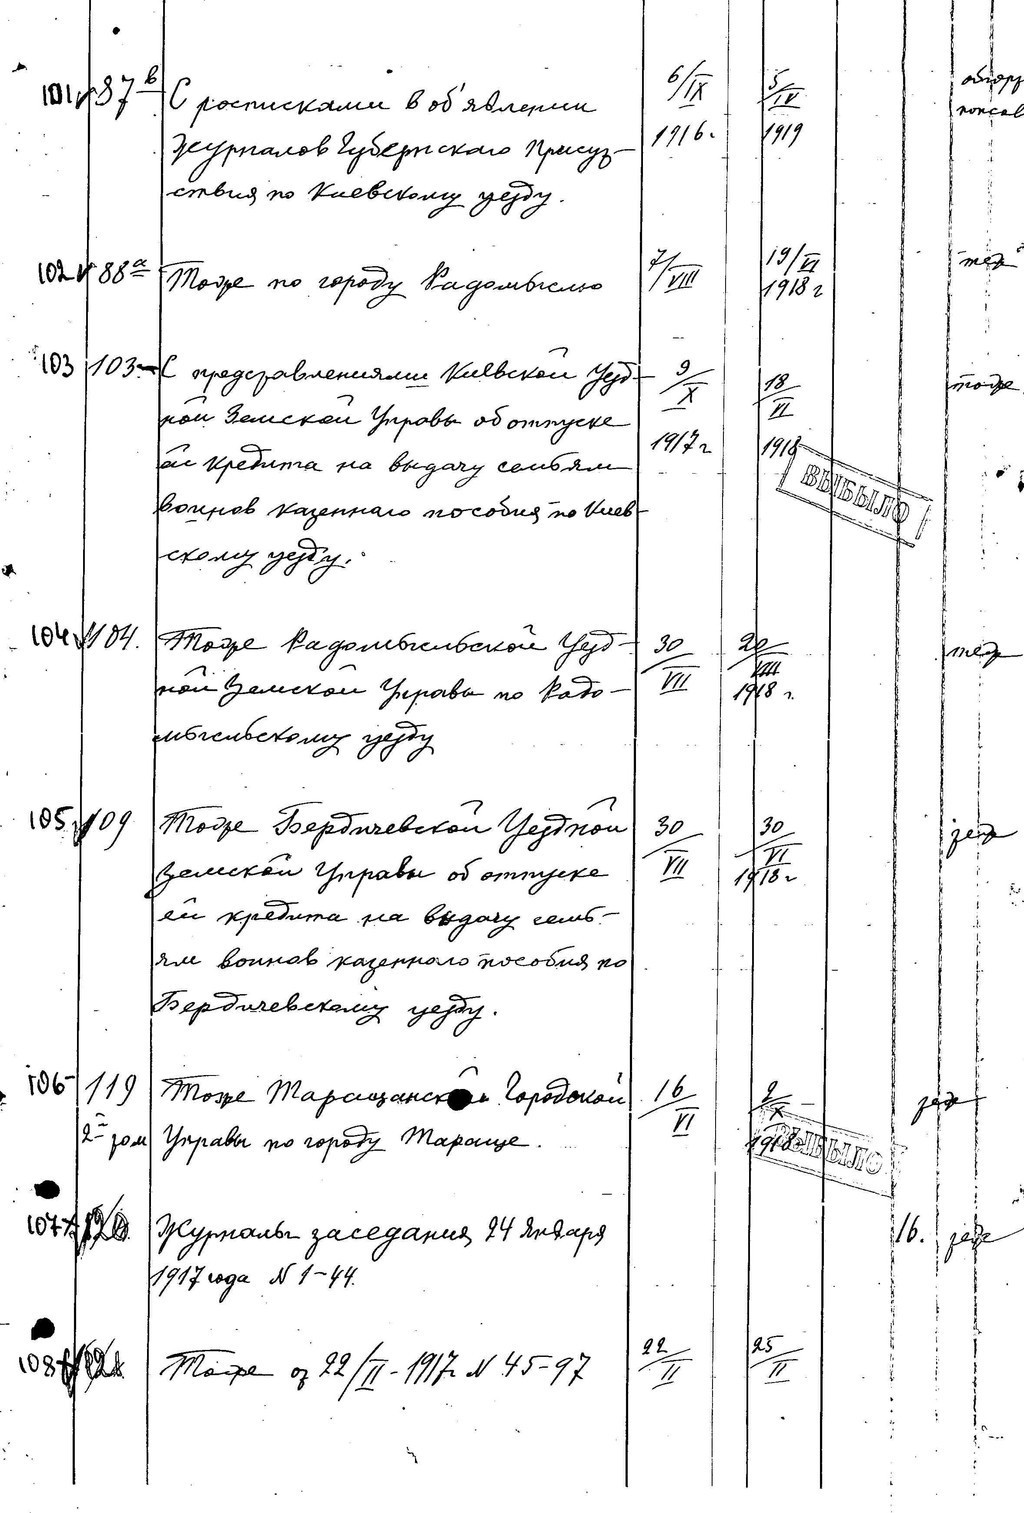 101 87 в С росписками в об'явлении 6/IX 5/IV
журналов Губернскаго Присут- 1916 г. 1919
ствия по Киевскому уезду.
102 88 а Тоже по городу Радомыслю 7/VIII 19/VI 1918 г тоже
103 103 С представлениями Киевской Уезд- 9/X 18/VI тоже
ной Земской Управы об отпуске 1917 г 1918
ей кредита на выдачу семьям ВЫБЫЛО
воинов казеннаго пособия по Киев-
скому уезду.
104 104. Тоже Радомысльской Уезд- 30/VII 20/VIII тоже
ной Земской Управы по Радо- 1918 г.
мысльскому уезду
105 109 Тоже Бердичевской Уездной 30/VII 30/VI тоже
Земской Управы об отпуске 1918 г
ей кредита на выдачу семь-
ям воинов казенного пособия по
Бердичевскому уезду.
106 119 Тоже Таращанской Городской 16/VI 2/X тоже
2й том Управы по городу Тараще. 1918 ВЫБЫЛО
107 Журналы заседания 24 января 16. тоже
1917 года N 1-44.
108 Тоже от 22/II - 1917 г N 45-97 22/II 25/II